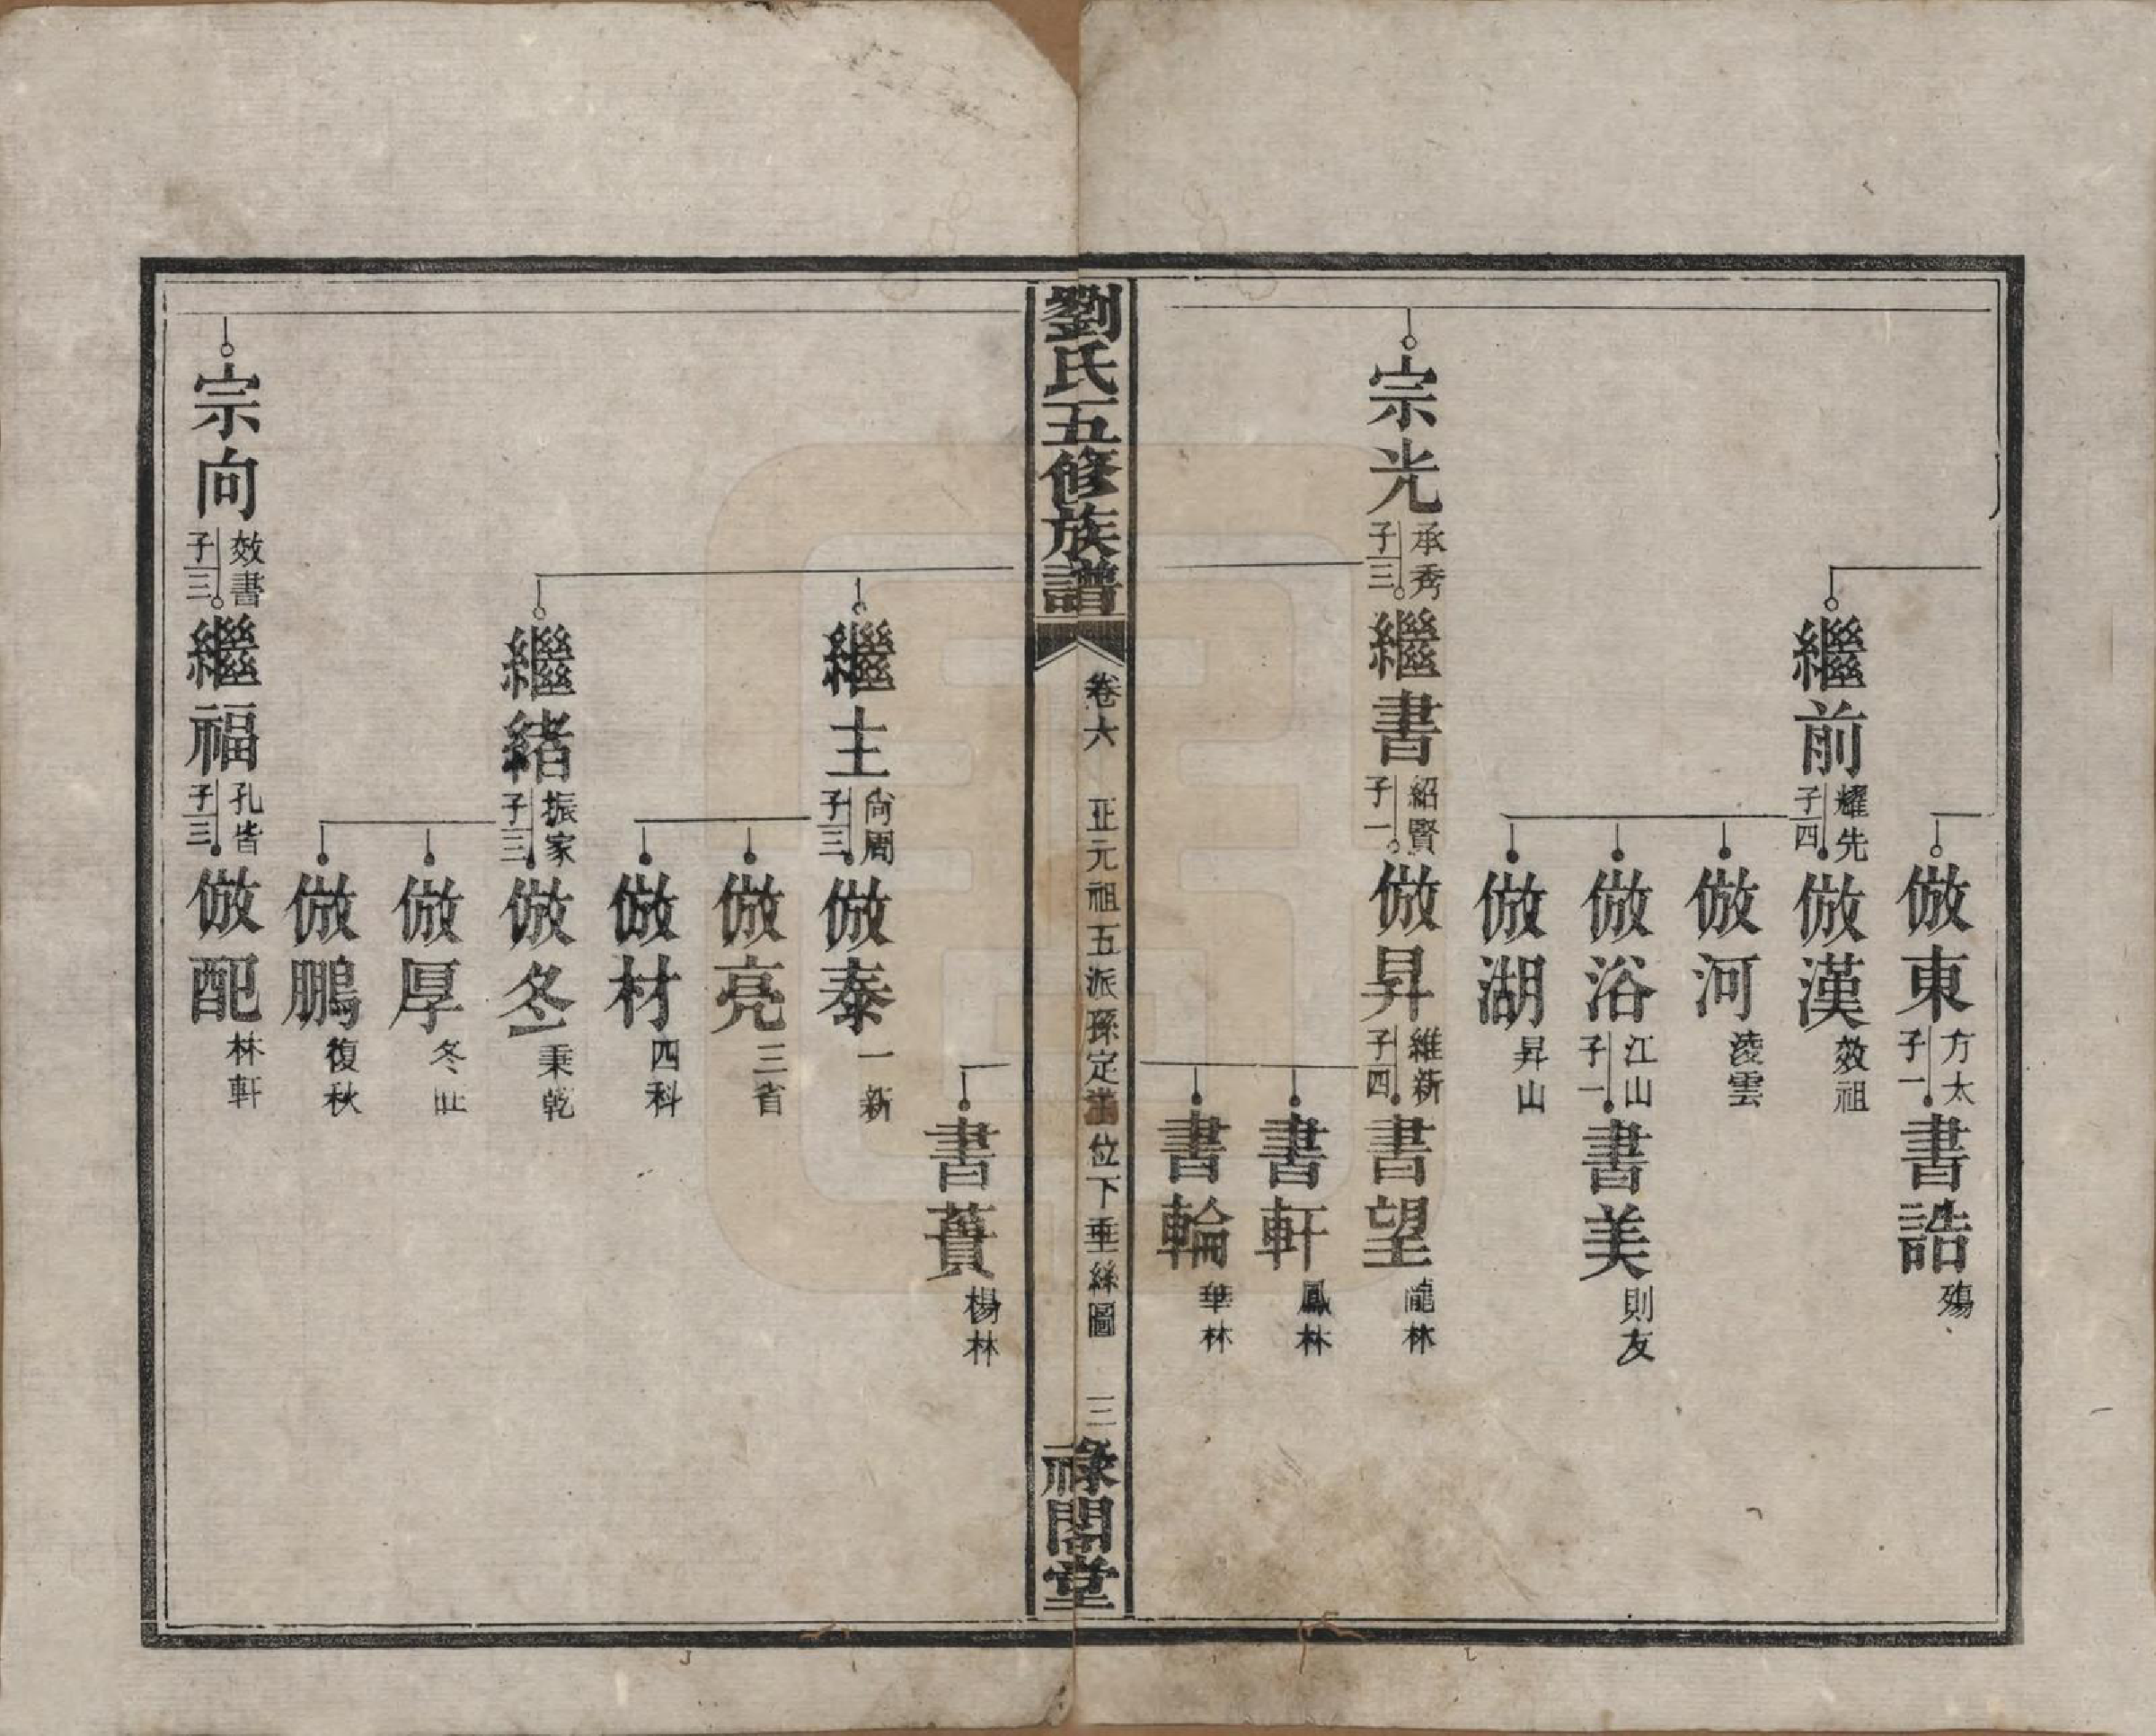 倣東 方太 子一
書誥 殤
繼前 耀先 子四
倣漢 效祖
倣河 淩雲
倣浴 江山 子一
書美 則友
倣湖 昇山
宗光 承秀 子三
繼書 紹賢 子一
倣昇 維新 子四
書望 龍林
書軒 鳳林
書輪 華林
劉氏五修族譜
卷六
正元祖五派孫定 位下垂絲圖
三
祿閣堂
書蕢 楊林
繼主 尙周 子三
倣泰 一新
倣亮 三省
倣材 四科
繼緒 振家 子三
倣冬 秉乾
倣厚 冬
倣鵬 復秋
宗向 效書 子三
繼福 孔皆 子三
倣配 林軒